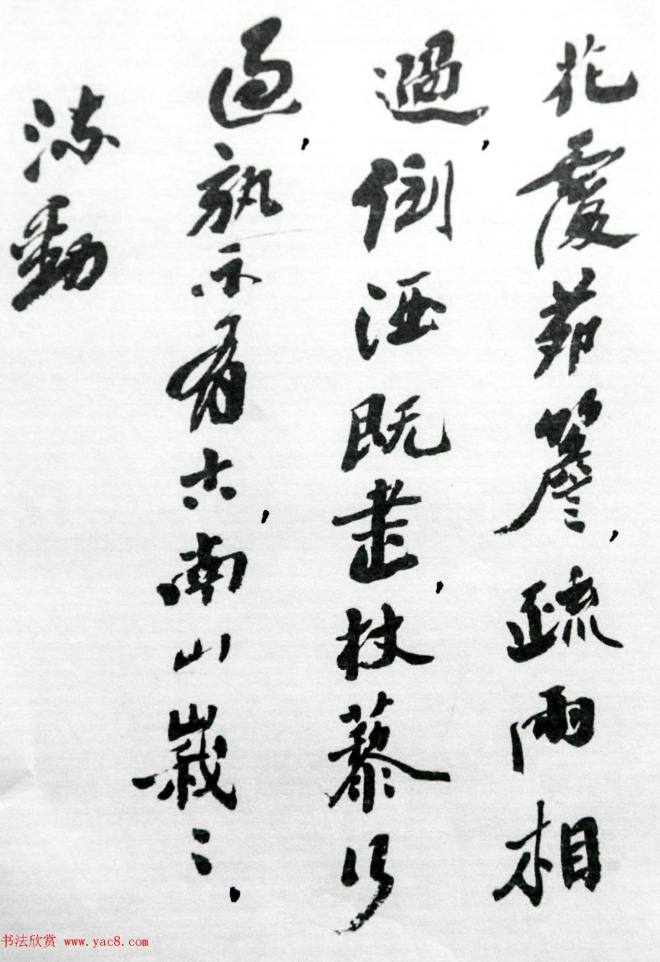 花覆茆簷,疏雨相
過,倒酒既盡,杖藜行
過,孰不有古,南山峩〻,
流動
书法欣赏 www.yac8.com